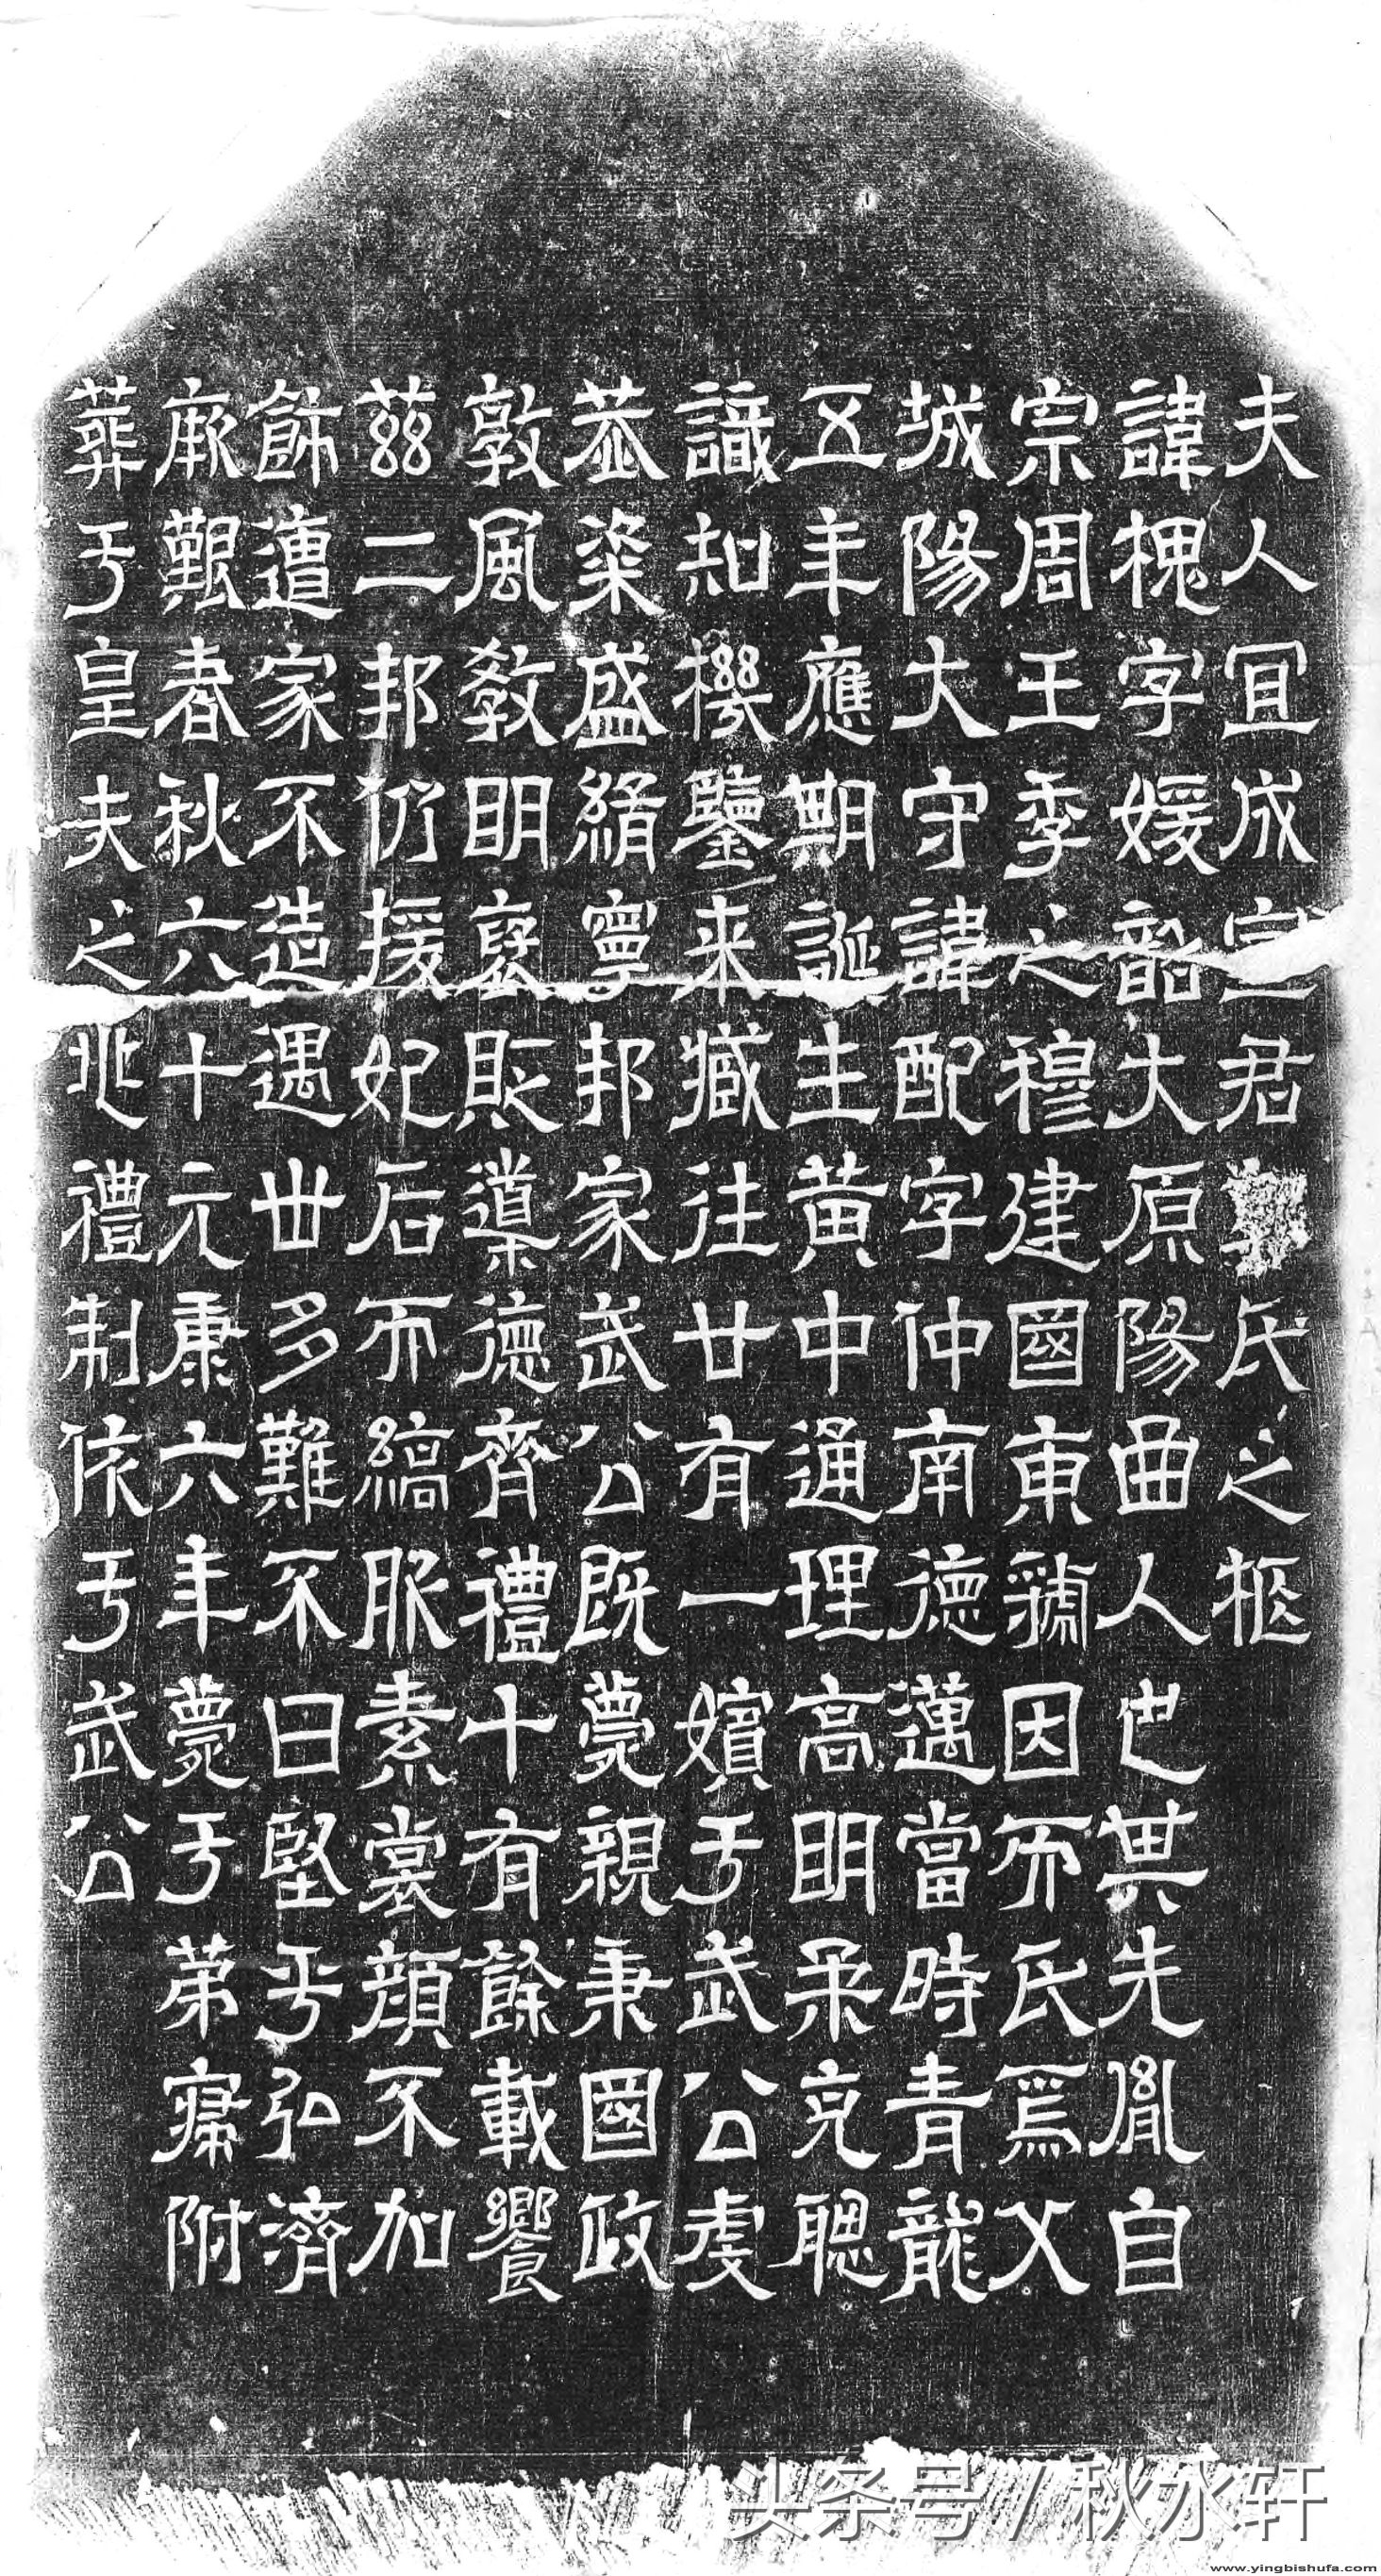 夫人宜成宣君氏之柩
諱槐字媛韶大原陽曲人也其先胤自
宗周王季之穆建國東虢因而氏焉父
城陽大守諱配字仲南德邁當時青龍
五年應期誕生黃中通理高明柔克聰
識知機鑒来臧往廿有一嬪于武公虔
恭粢盛緝寧邦家武公既薨親秉國政
敦風教明褒貶導德齊禮十有餘載饗
茲二邦仍援妃后而縞服素裳顏不加
飾遭家不造遇世多難不曰堅乎弘濟
厥艱春秋六十元康六年薨于第寢附
葬于皇夫之兆禮制依于武公
头条号 / 秋水轩
www.yingbishufa.com